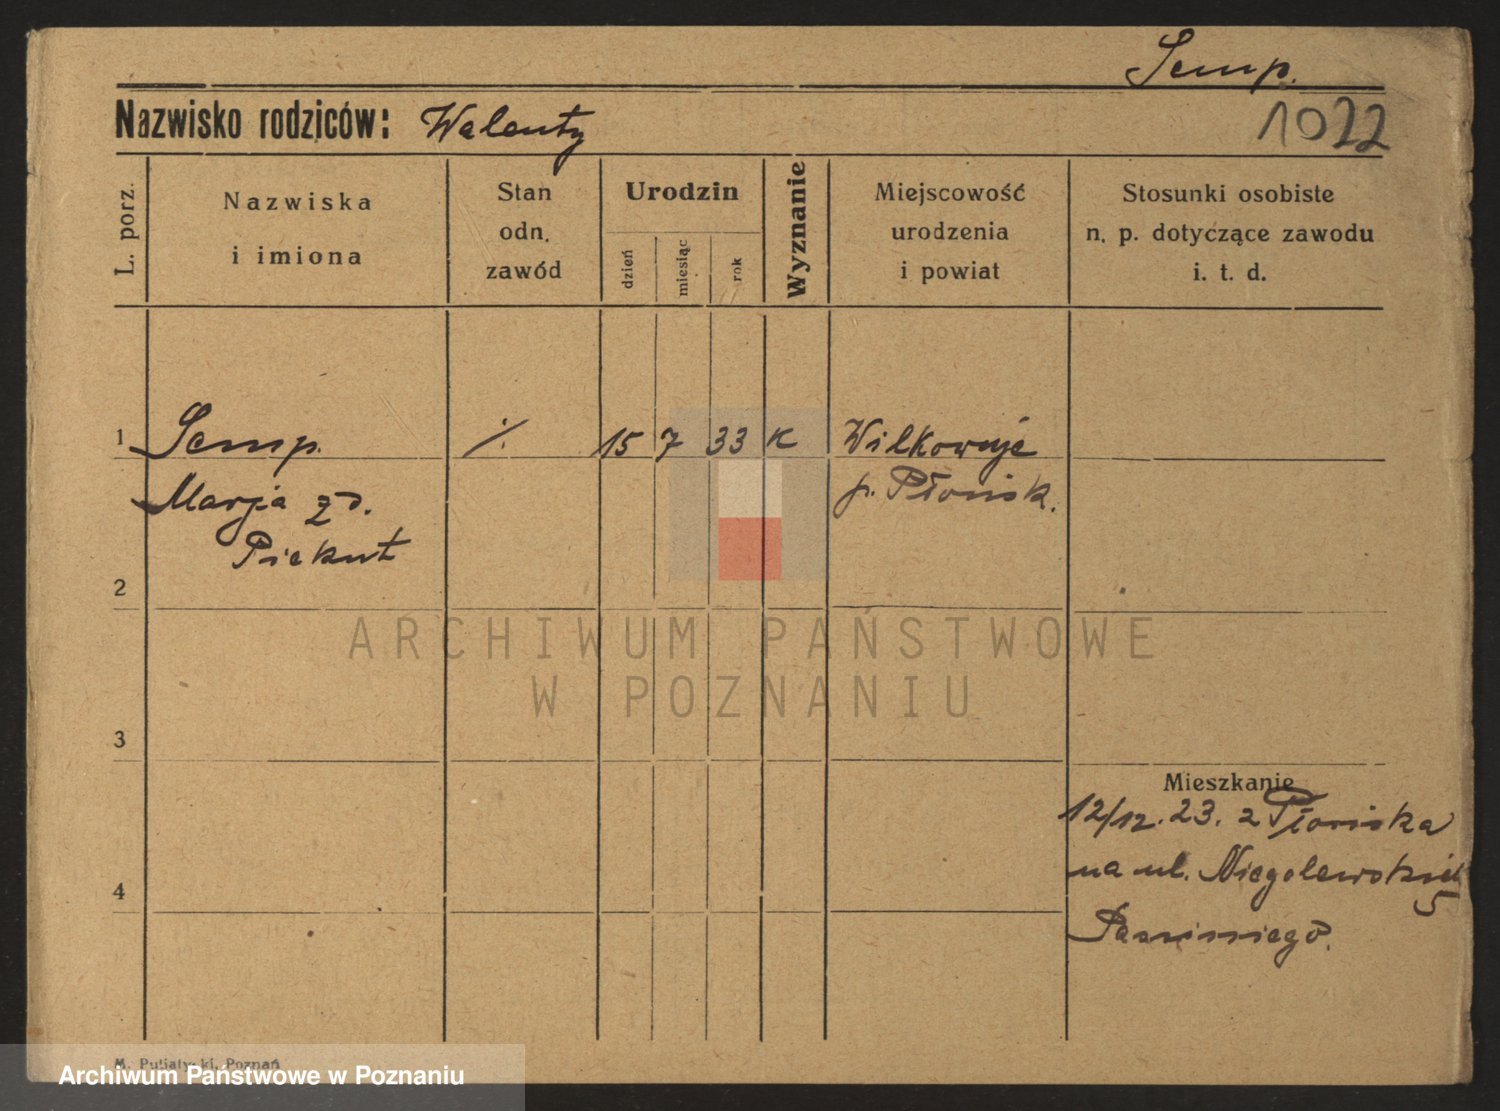 Semp.
1022
Nazwisko rodziców: Walenty
L. porz.
Nazwiska
i imiona
Stan
odn.
zawód
Urodzin
dzień
miesiąc
rok
Wyznanie
Miejscowość
urodzenia
i powiat
Stosunki osobiste
n. p. dotyczące zawodu
i. t. d.
1 Semp. ./. 15 7 33 K Wilkowuje
Marja zd. p. Płońsk.
Piekut
2
ARCHIWUM PAŃSTWOWE
W POZNANIU
3
Mieszkanie
12/12. 23. z Płońska
na ul. Niegolewskich
5
4
M. Putiatycki, Poznań
Archiwum Państwowe w Poznaniu